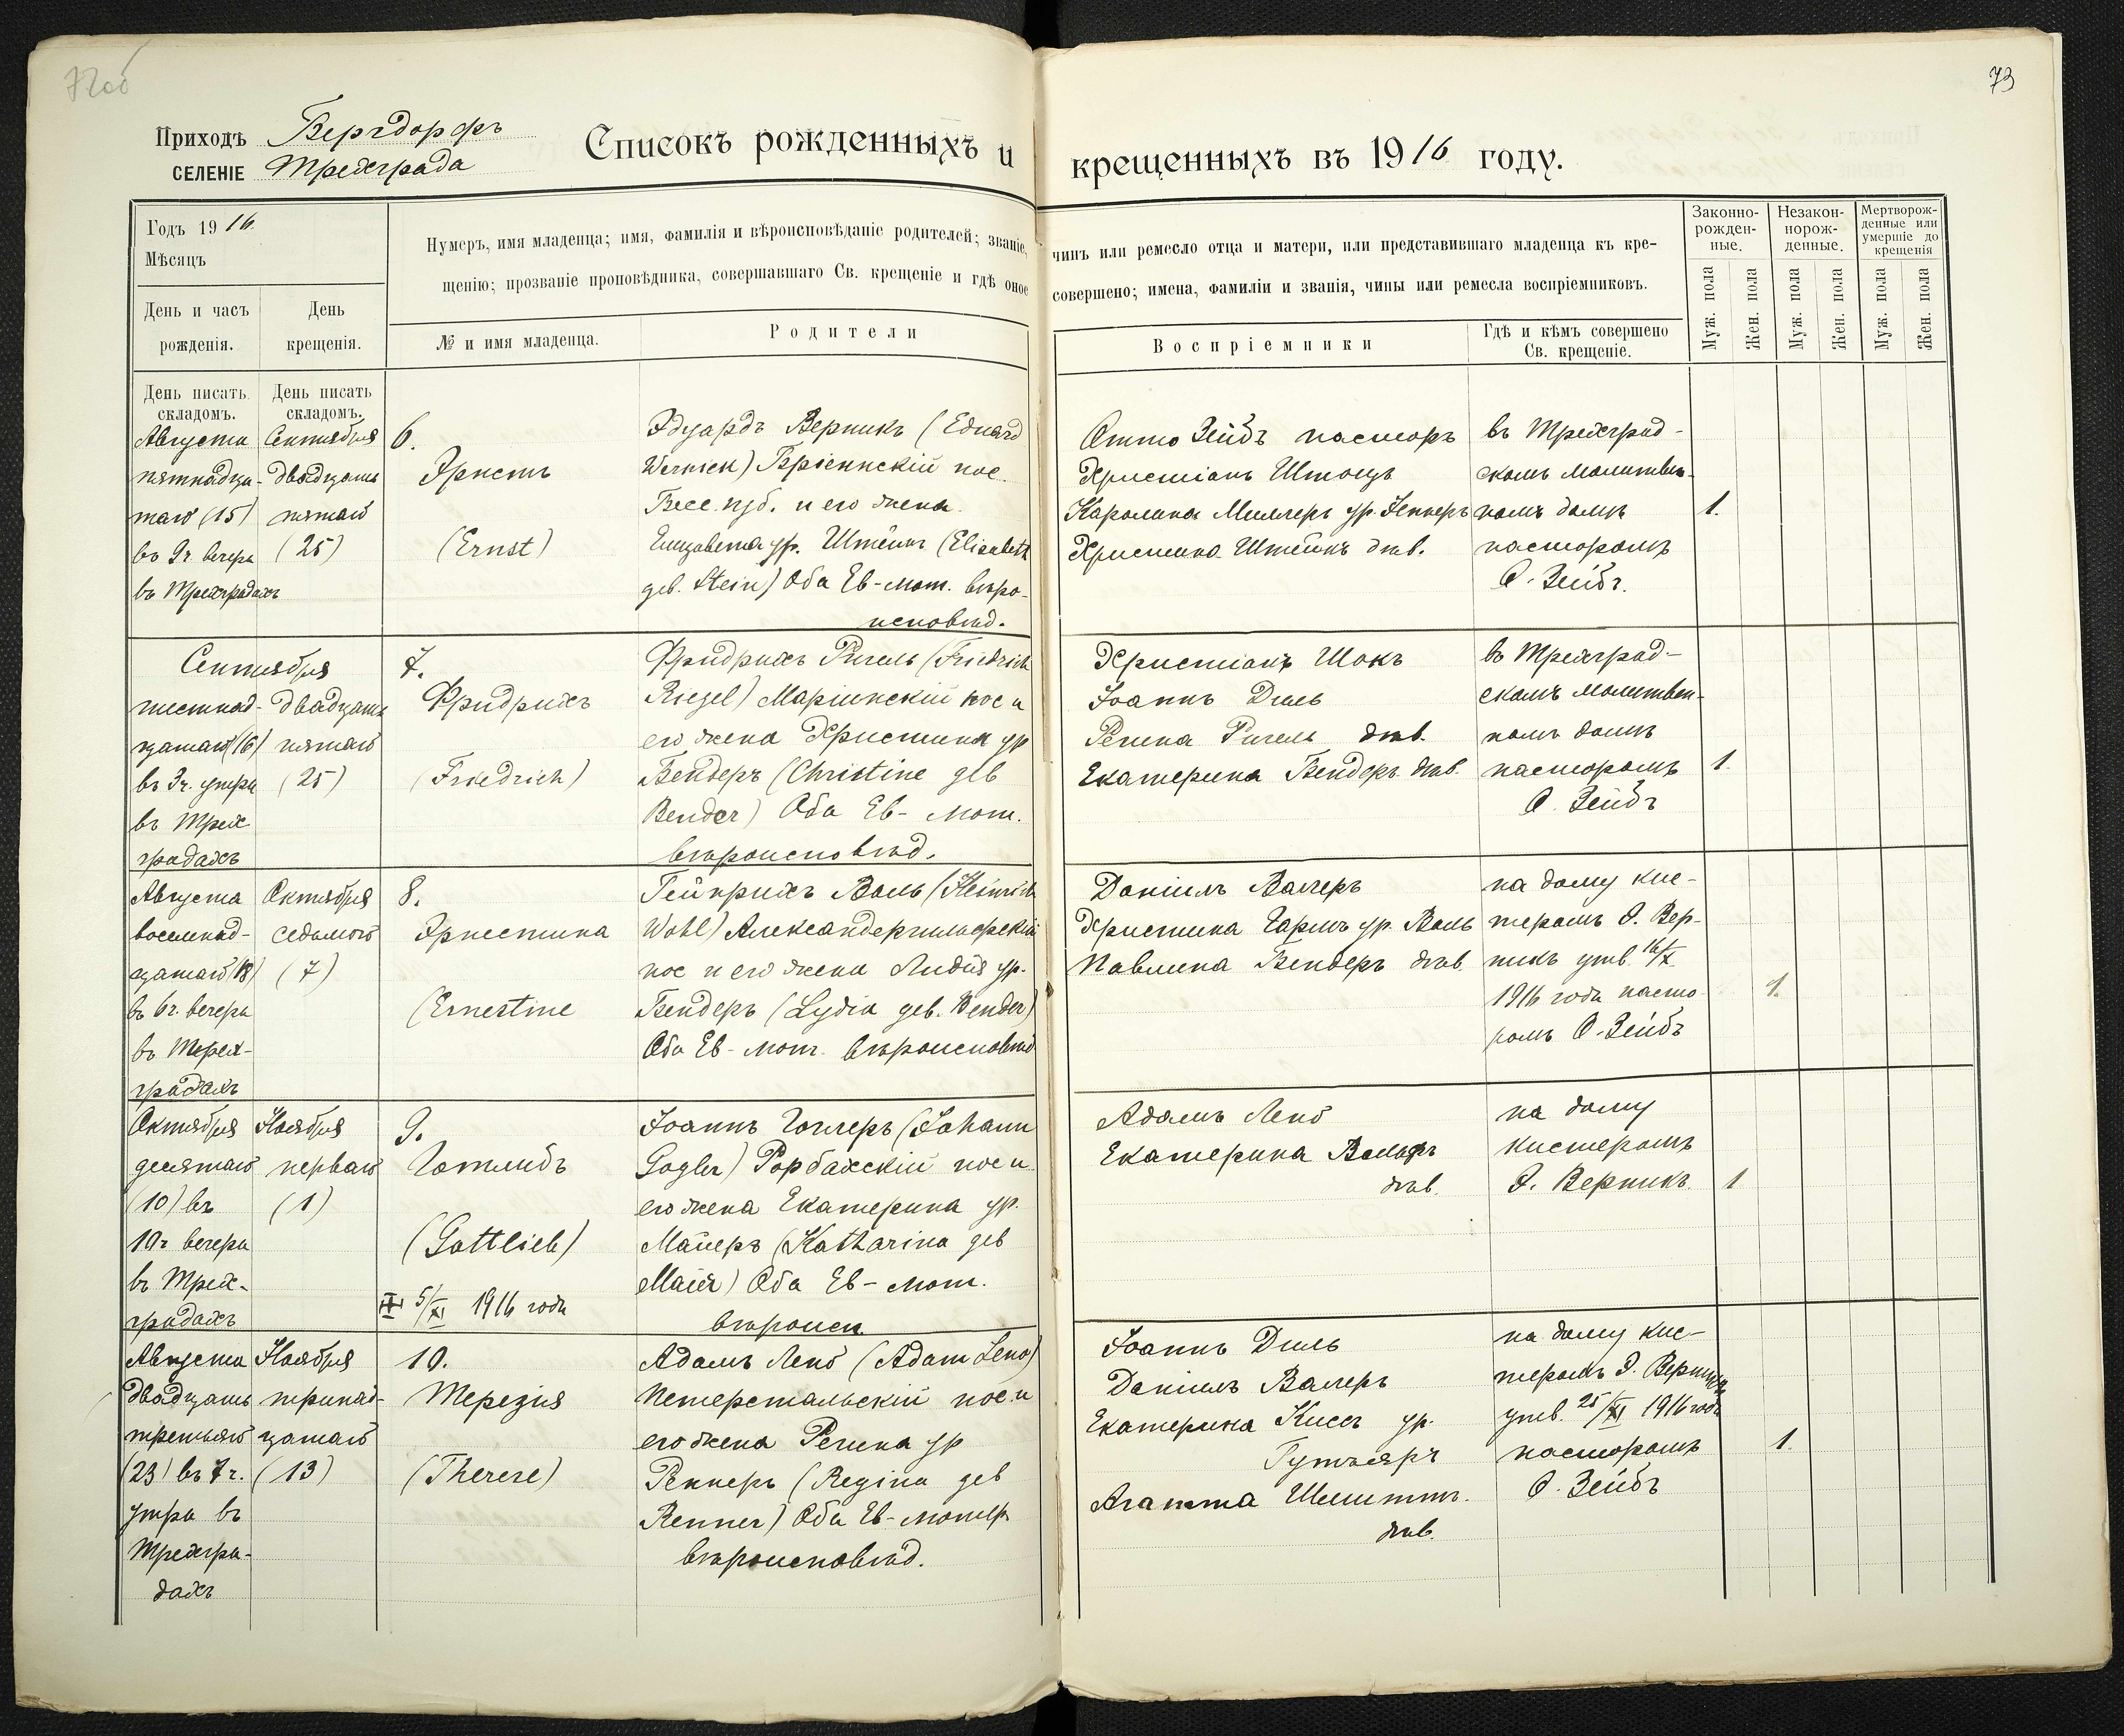 72об
73
Приходъ Бергдорфъ
СЕЛЕНІЕ Трехграда
Списокъ рожденныхъ и крещенныхъ въ 1916 году.
Годъ 1916
Мѣсяцъ
День и часъ рожденія.
День крещенія.
Нумеръ, имя младенца; имя, фамилія и вѣроисповѣданіе родителей; званіе, чинъ или ремесло отца и матери, или представившаго младенца къ кре-
щенію; прозваніе проповѣдника, совершавшаго Св. крещеніе и гдѣ оное совершено; имена, фамиліи и званія, чины или ремесла воспріемниковъ.
№ и имя младенца.
Родители
Воспріемники
Гдѣ и кѣмъ совершено Св. крещеніе.
Законно-рожден-ные.
Незакон-норож-денные.
Мертворож-денные или умершіе до крещенія
Муж. пола
Жен. пола
Муж. пола
Жен. пола
Муж. пола
Жен. пола
День писать складомъ.
День писать складомъ.
Августа
пятнадца-
таго (15)
въ 9ч. вечера
въ Трехградахъ
Сентября
двадцать
пятаго
(25)
6.
Эрнстъ
(Ernst)
Эдуардъ Верникъ (Eduard
Wernick) Бріеннскій пос.
Бесс. губ. и его жена
Елизавета ур. Штейнъ (Elisabeth
geb. Stein) Оба Ев-лют. вѣро-
исповѣд.
Отто Зейбъ пасторъ
Христіанъ Штоцъ
Каролина Миллеръ ур. Геннеръ
Христина Штейнъ дѣв.
въ Трехград-
скомъ молитвен-
номъ домѣ
пасторомъ
О. Зейбъ.
1.
Сентября
шестнад-
цатаго (16)
въ 3ч. утра
въ Трех-
градахъ
двадцать
пятаго
(25)
7.
Фридрихъ
(Friedrich)
Фридрихъ Ригель (Friedrich
Riegel) Маріинскій пос и
его жена Христина ур
Бендеръ (Christine geb
Bender) Оба Ев-лют.
вѣроисповѣд.
Христіанъ Шокъ
Іоаннъ Диль
Регина Ригель дѣв.
Екатерина Бендеръ дѣв.
въ Трехград-
скомъ молитвен-
номъ домѣ
пасторомъ
О. Зейбъ
1.
Августа
восемнад-
цатаго (18)
въ 6ч. вечера
въ Трех-
градахъ
Октября
седьмого
(7)
8.
Эрнестина
(Ernestine
Гейнрихъ Воль (Heinrich
Wohl) Александергильфскій
пос и его жена Лидія ур.
Бендеръ (Lydia geb. Bender)
Оба Ев-лют. вѣроисповѣд
Даніилъ Валеръ
Христина Гармъ ур. Воль
Павлина Бендеръ дѣв.
на дому кис-
теромъ Э. Вер-
никъ утв. 16/X
1916 года пасто-
ромъ О. Зейбъ
1.
Октября
десятаго
(10) въ
10ч вечера
въ Трех-
градахъ
Ноября
перваго
(1)
9.
Готлибъ
(Gottlieb)
5/XI 1916 года
Іоаннъ Гоглеръ (Johann
Gogler) Рорбахскій пос и
его жена Екатерина ур.
Майеръ (Katharina geb
Maier) Оба Ев-лют.
вѣроисп
Адамъ Лено
Екатерина Вольфъ
дѣв.
на дому
кистеромъ
Э. Верникъ
1
Августа
двадцать
третьяго
(23) въ 7ч.
утра въ
Трехгра-
дахъ
Ноября
тринад-
цатаго
(13)
10.
Терезія
(Therese)
Адамъ Лено (Adam Leno)
Петерстальскій пос. и
его жена Регина ур
Реннеръ (Regina geb
Renner) Оба Ев-лютер.
вѣроисповѣд.
Іоаннъ Диль
Даніилъ Валеръ
Екатерина Киссъ ур.
Агатта
дѣв.
на дому кис-
теромъ Э. Верникъ
утв. 25/XI 1916 года
пасторомъ
О. Зейбъ
1.